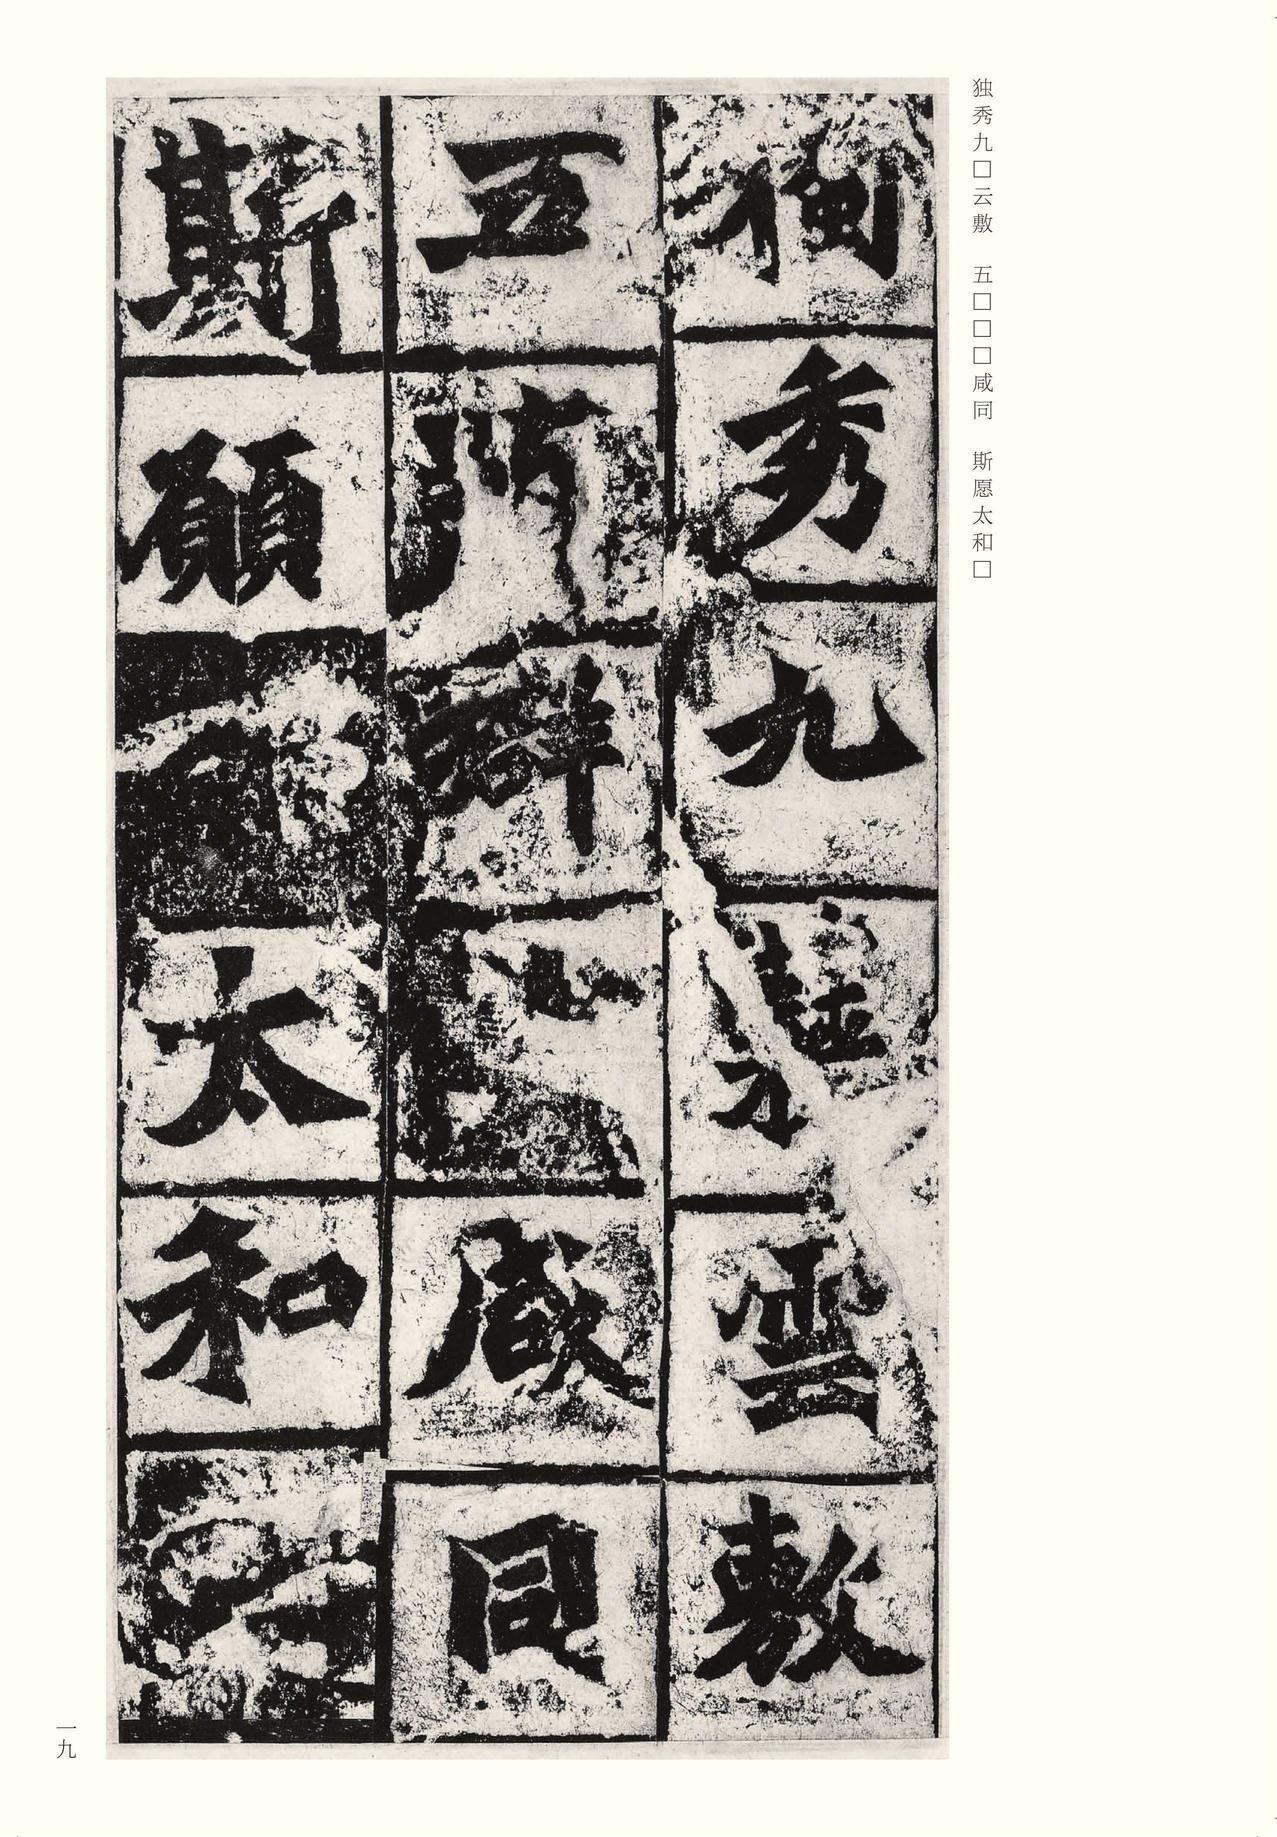 独秀九□云敷　五□□□咸同　斯愿太和□
獨秀九雲敷
五有群咸同
斯願太和
一九